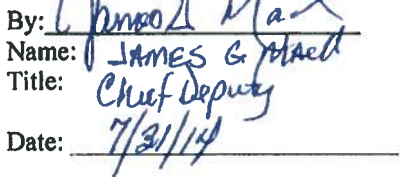 By:
Name: JAMES G
Title: Chief Deputy
Date: 7/31/14